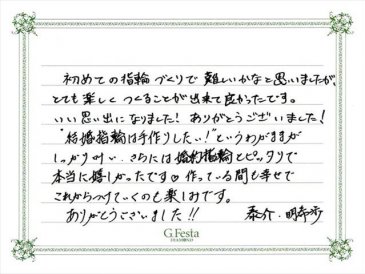 初めての指輪づくりで難しいかなと思いましたが、
とても楽しくつくることが出来て良かったです。
いい思い出になりました！ありがとうございました！
"結婚指輪は手作りしたい！"というわがままが
しっかり叶い、さらには婚約指輪とピッタリで
本当に嬉しかったです♡作っている間も幸せで
これからつけていくのも楽しみです。
ありがとうございました!!
泰介・明希歩
G.Festa
DIAMOND